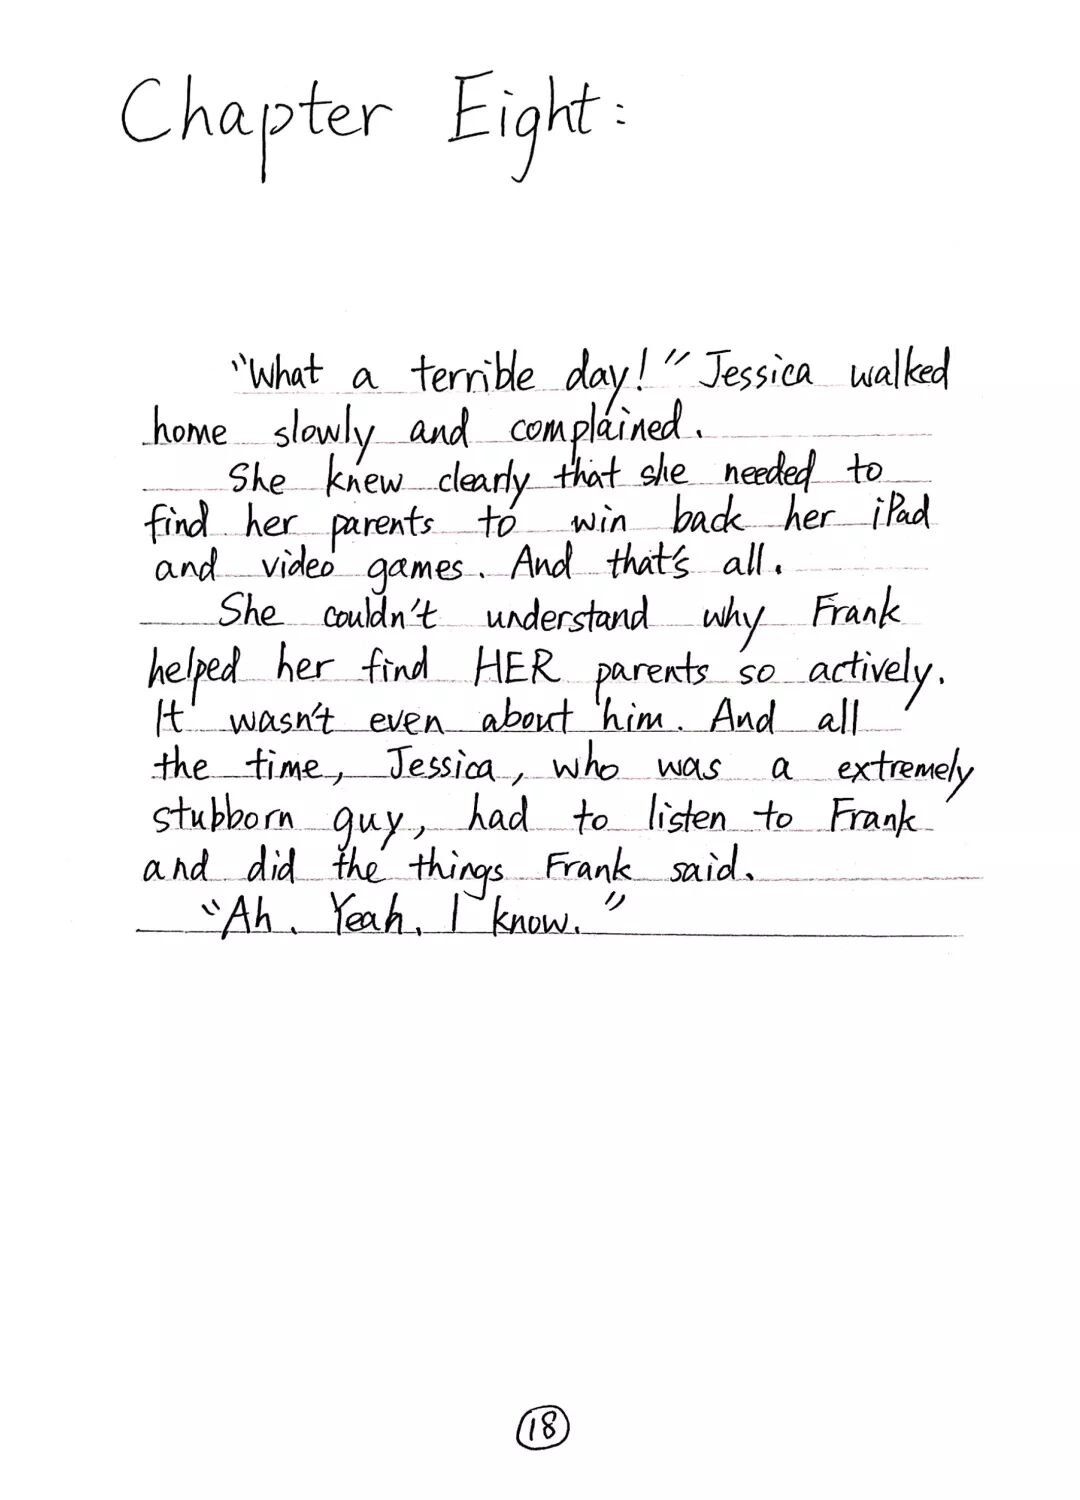 Chapter Eight:
"What a terrible day!" Jessica walked
home slowly and complained.
She knew clearly that she needed to
find her parents to win back her iPad
and video games. And that's all.
She couldn't understand why Frank
helped her find HER parents so actively.
It wasn't even about him. And all
the time, Jessica, who was a extremely
stubborn guy, had to listen to Frank
and did the things Frank said.
"Ah. Yeah. I know."
18